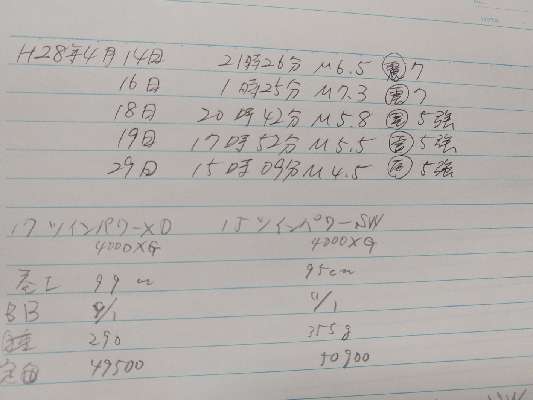 H28年4月14日 21時26分 M6.5 震7
16日 1時25分 M7.3 震7
18日 20時42分 M5.8 震5強
19日 17時52分 M5.5 震5強
29日 15時09分 M4.5 震5強
17ツインパワーXD 15ツインパワーSW
4000XG 4000XG
巻上 99cm 95cm
BB 9/1 11/1
自重 290 355g
定価 49500 50900